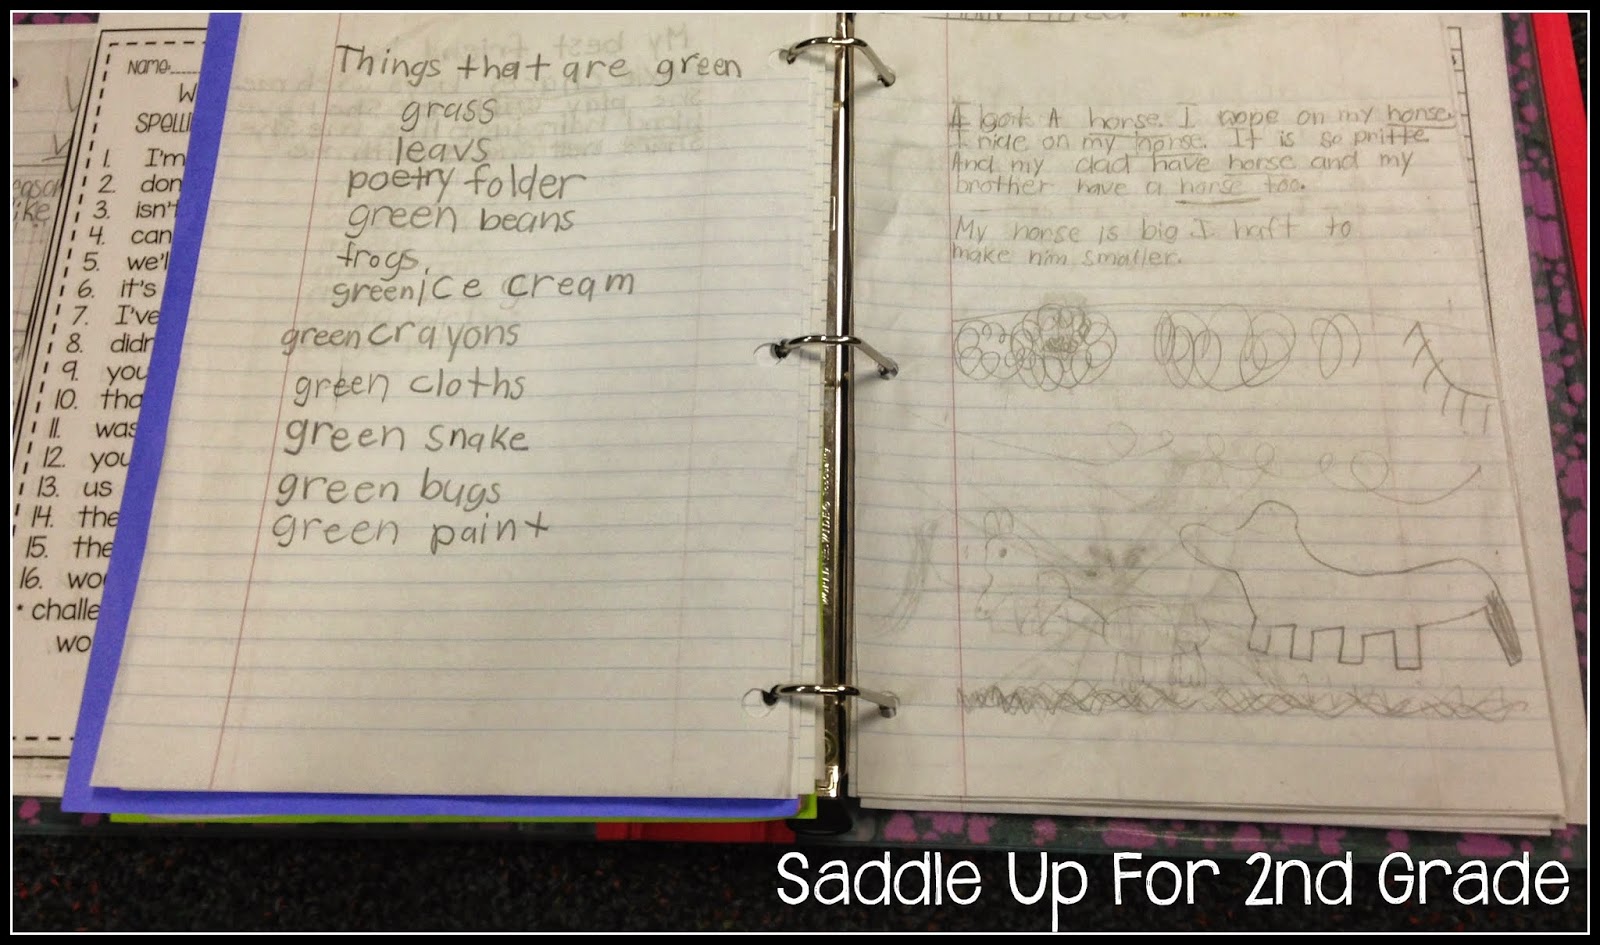 Name:
W
Spelli
1. I'm
2. don
3. isn't
4. can
5. we'l
6. it's
7. I've
8. didn
9. you
10. tha
11. was
12. you
13. us
14. the
15. the
16. wo
* challe
wo
Things that are green
grass
leavs
poetry folder
green beans
frogs.
green ice cream
green crayons
green cloths
green snake
green bugs
green paint
A horse. I rope on my horse.
I ride on my horse. It is so pritte
And my dad have horse and my
brother have a horse too.
My horse is big I haft to
make him smaller.
Saddle Up For 2nd Grade